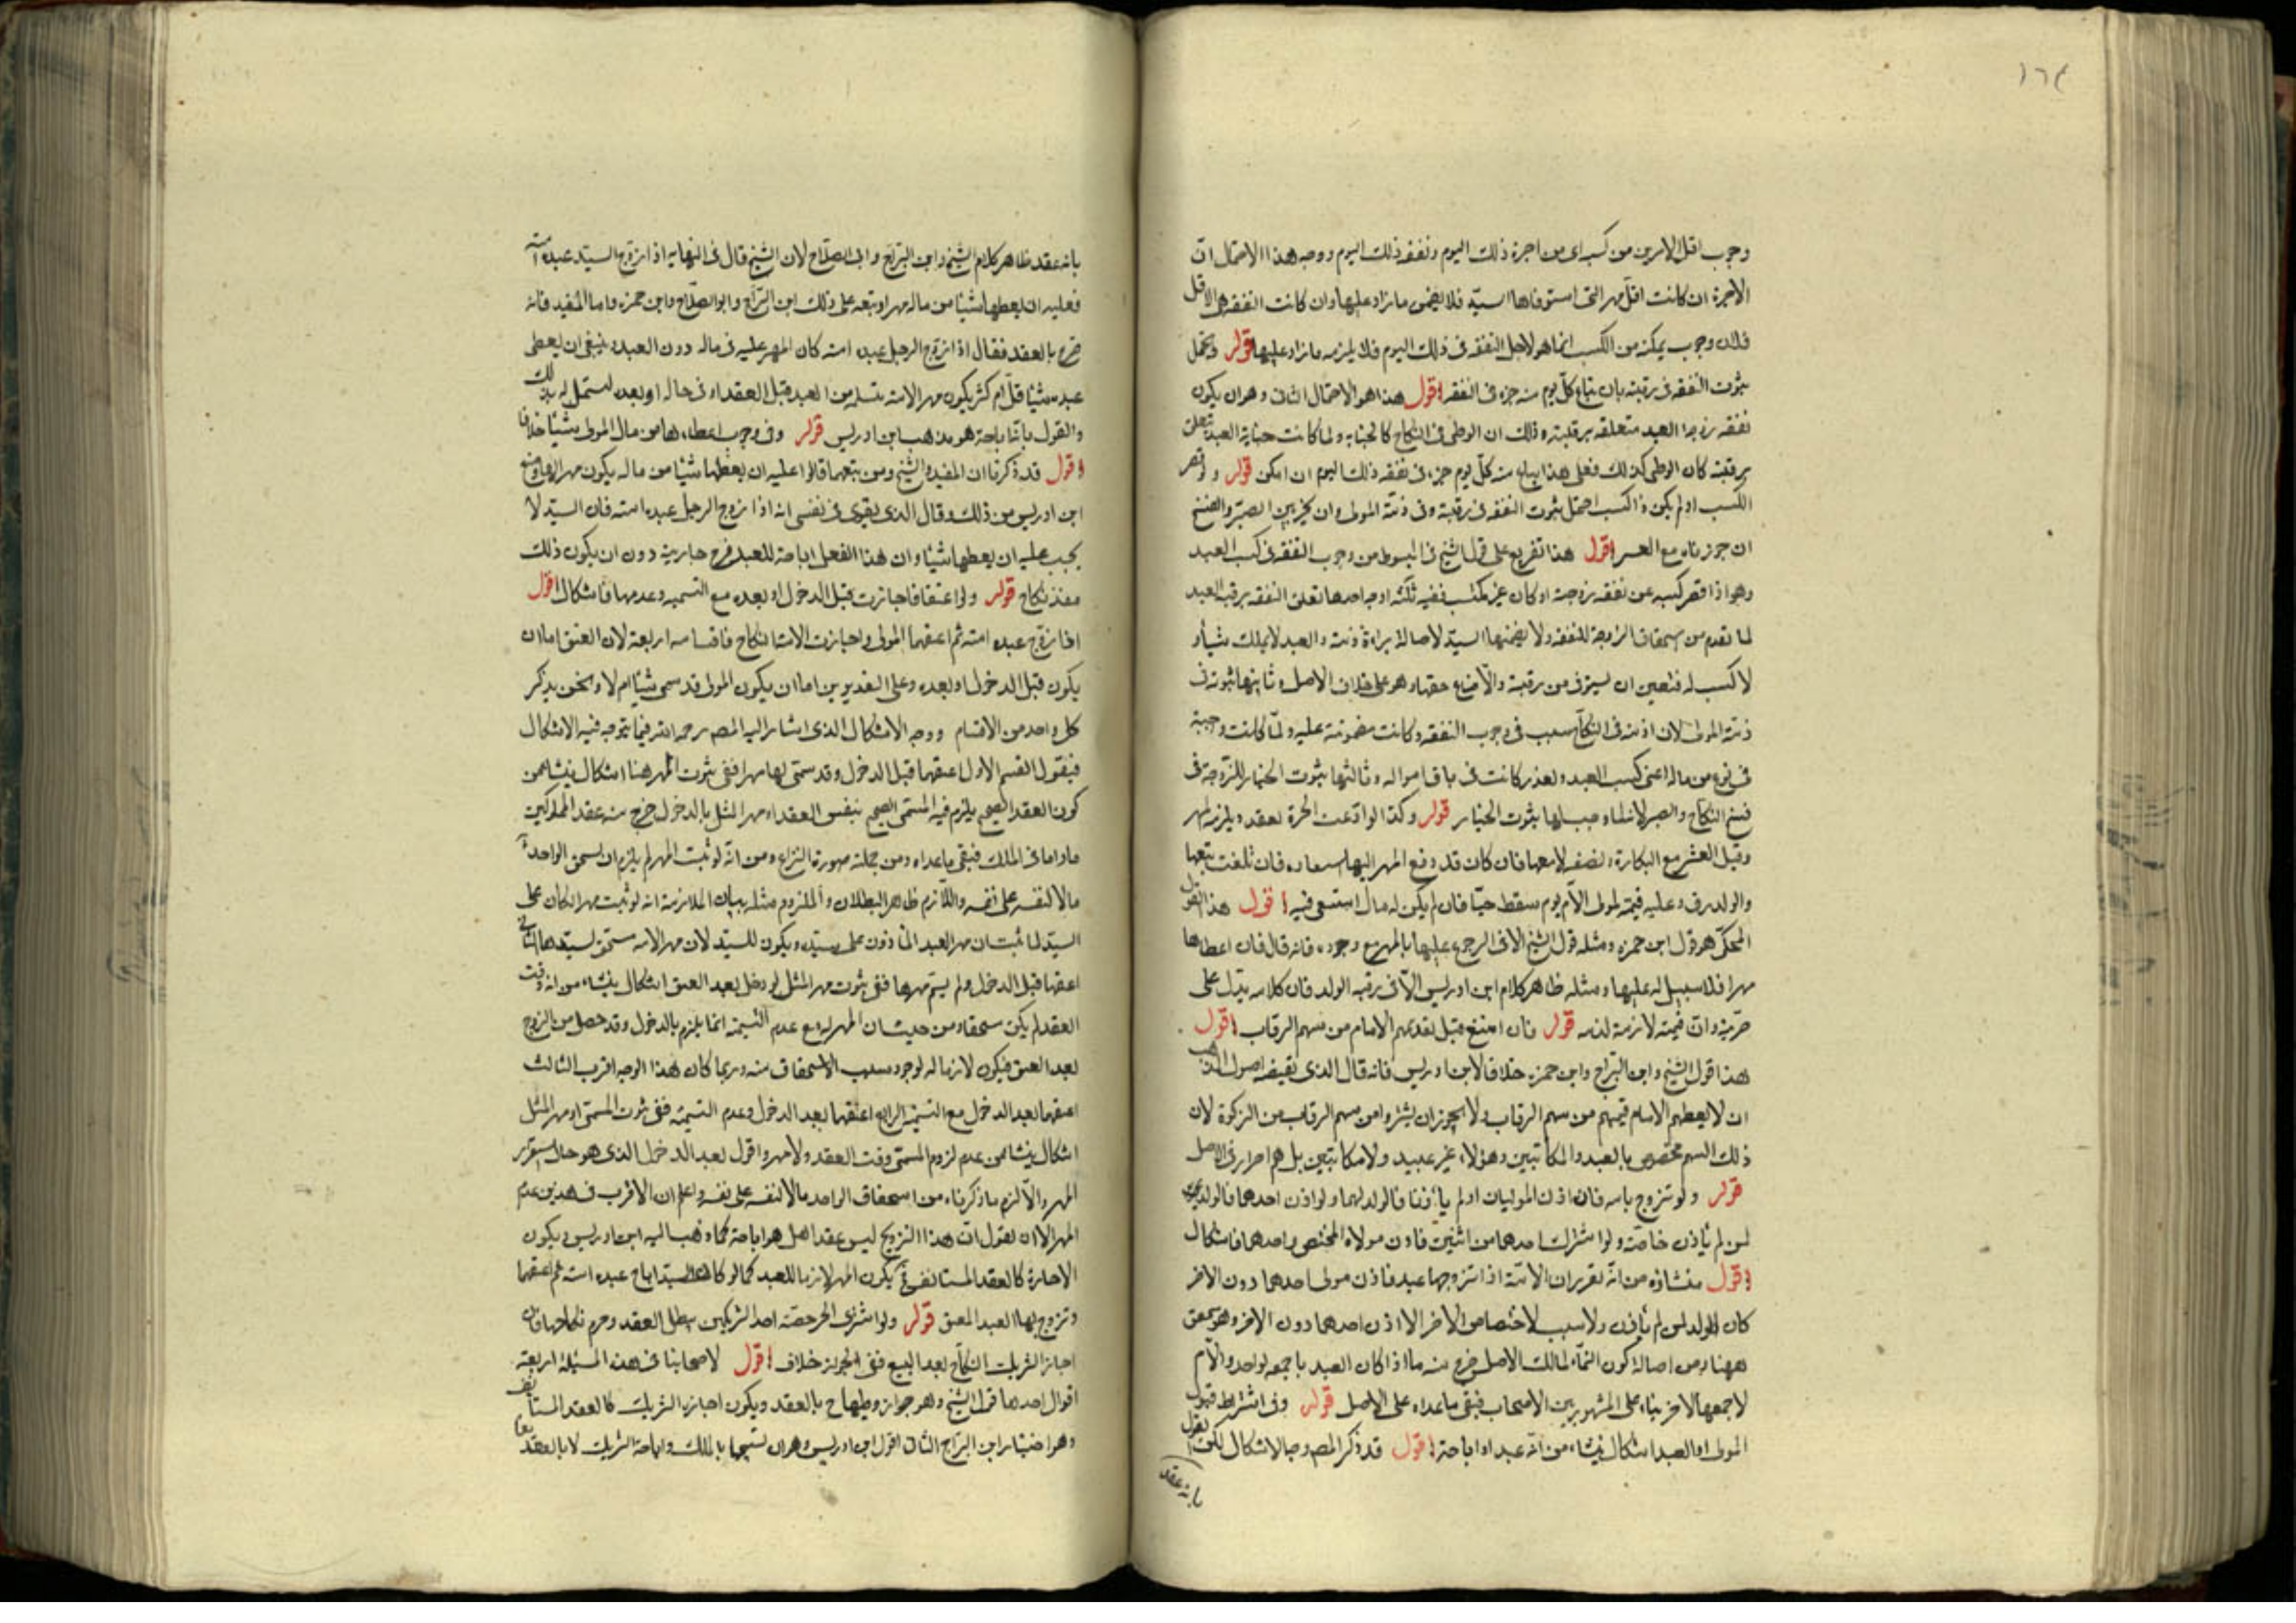 ١٦٤
وجوب اقل الامرين من كسبه اى من اجرة ذلك اليوم ونفقة ذلك اليوم ووجه هذا الاحتمال ان
الاجرة ان كانت اقل فهى التى استوفاها السيد فلا يضمن ما زاد عليها وان كانت النفقة هى الاقل
فلان وجوب تمكنه من الكسب انما هو لاجل النفقة فى ذلك اليوم فلا يلزمه ما زاد عليها قوله ويحتمل
ثبوت النفقة فى رقبته بان يباع كل يوم منه جزء فى النفقة اقول هذا هو الاحتمال الثانى وهو ان يكون
نفقة زوجة العبد متعلقة برقبته وذلك ان الوطى فى النكاح كالجناية ولما كانت جناية العبد تتعلق
برقبته كان الوطى كذلك فعلى هذا يباع منه كل يوم جزء فى نفقة ذلك اليوم ان امكن قوله ولو قصر
الكسب او لم يكن ذا كسب احتمل ثبوت النفقة فى رقبته وفى ذمة المولى وان يتخير بين الصبر والفسخ
ان جوزناه مع العسر اقول هذا تفريع على قول الشيخ فى المبسوط من وجوب النفقة فى كسب العبد
وهو اذا قصر كسبه عن نفقة زوجته او كان غير مكتسب ففيه ثلثة اوجه احدها تعلق النفقة برقبة العبد
لما تقدم من استحقاق الزوجة للنفقة ولا يضمنها السيد لاصالة براءة ذمته والعبد لا يملك شيئا و
لا كسب له فتعين ان يستوفى من رقبته والا ضاع حقها وهو على خلاف الاصل وثانيها ثبوته فى
ذمة المولى لان اذنه فى النكاح سبب فى وجوب النفقة وكانت مضمونة عليه ولما كانت واجبة
فى نوع من ماله اعنى كسب العبد وتعذر كانت فى باقى امواله وثالثها ثبوت الخيار للزوجة فى
فسخ النكاح والصبر قوله وكذا لو ادعت الحرية لعقد ويلزمه المهر
وقيل العشر مع البكارة ونصفه لا معها فان كان قد دفع المهر اليها استعاده فان تلفت تبعها
والولد رق وعليه قيمته لمولى الام يوم سقط حيا فان لم يكن له مال استسعى فيه اقول هذا القول
المحكى هو قول ابن حمزة ومثله قول الشيخ الا فى الرجوع عليها بالمهر مع وجوده فانه قال فان اعطاها
مهرا فلا سبيل له عليها ومثله ظاهر كلام ابن ادريس الا فى رقية الولد فان كلامه يدل على
حريته وان قيمته لازمة لذمته قوله فان امتنع قيل يفديهم الامام من سهم الرقاب اقول
هذا قول الشيخ وابن البراج وابن حمزة خلافا لابن ادريس فانه قال الذى يقتضيه اصول المذهب
ان لا يعطيهم الامام قيمتهم من سهم الرقاب ولا يجوز ان يشتروا من سهم الرقاب من الزكوة لان
ذلك السهم مخصوص بالعبيد والمكاتبين وهؤلاء غير عبيد ولا مكاتبين بل هم احرار فى الاصل
قوله ولو تزوج بامة فان اذن الموليان او لم يأذنا فالولد لهما ولو اذن احدهما فالولد
لمن لم يأذن خاصة ولو اشترك احدهما من اثنين فاذن مولاه المختص واحدهما فاشكال
اقول منشاؤه من انه تقرر ان الامة اذا تزوجها عبد فاذن مولى احدهما دون الاخر
كان الولد لمن لم يأذن ولا سبب لاختصاص الاخر الا اذن احدهما دون الاخر وهو متحقق
ههنا ومن اصالة كون النماء لمالك الاصل خرج منه ما اذا كان العبد باجمعه لواحد والام
لاجمعها لاخر بناء على المشهور بين الاصحاب فبقى ما عداه على الاصل قوله وفى اشتراط قبول
المولى او العبد اشكال ينشاء من انه عقد او اباحة اقول قد ذكر المصـ وجه الاشكال لكن القول
بانه عقد
بانه عقد ظاهر كلام الشيخ وابن البراج وابى الصلاح لان الشيخ قال فى النهاية اذا زوج السيد عبده امته
فعليه ان يعطيها شيئا من ماله مهرا وتبعه على ذلك ابن البراج وابو الصلاح وابن حمزة واما المفيد فانه
صرح بالعقد فقال اذا زوج الرجل عبده امته كان المهر عليه فى ماله دون العبد وينبغى ان يعطى
عبده شيئا قل ام كثر يكون مهر الامة يتسلمه من العبد قبل العقد او فى حاله او بعده لتستحل له بذلك
والقول بانها اباحة هو مذهب ابن ادريس قوله وفى وجوب اعطائها من مال المولى شيئا خلاف
اقول قد ذكرنا ان المفيد والشيخ ومن تبعهما قالوا عليه ان يعطيها شيئا من ماله يكون مهرا لها ومنع
ابن ادريس من ذلك وقال الذى يقوى فى نفسى انه اذا زوج الرجل عبده امته فان السيد لا
يجب عليه ان يعطيها شيئا وان هذا الفعل اباحة للعبد فرج جاريته دون ان يكون ذلك
عقد نكاح قوله ولو اعتقا فاجازت قبل الدخول او بعده مع التسمية وعدمها فاشكال اقول
اذا زوج عبده امته ثم اعتقهما المولى واجازت الامة النكاح فاقسامه اربعة لان العتق اما ان
يكون قبل الدخول او بعده وعلى التقديرين اما ان يكون المولى قد سمى شيئا ام لا ونحن نذكر
كل واحد من الاقسام ووجه الاشكال الذى اشار اليه المصـ رحمه الله فيما يتوجه فيه الاشكال
فنقول القسم الاول اعتقهما قبل الدخول وقد سمى لها مهرا ففى ثبوت المهر هنا اشكال ينشا من
كون العقد الصحيح يلزم فيه المسمى الصحيح بنفس العقد او مهر المثل بالدخول خرج منه عقد المملوكين
ما داما فى الملك فبقى ما عداه ومن جملته صورة النزاع ومن انه لو ثبت المهر لم يلزم ان يستحق الواحد
مالا لنفسه على نفسه واللازم ظاهر البطلان والملزوم مثله بيان الملازمة انه لو ثبت مهر لكان على
السيد لما ثبت ان مهر العبد المأذون على سيده ويكون للسيد لان مهر الامة مستحق لسيدها الثانى
اعتقها قبل الدخول ولم يسم مهرها ففى ثبوت مهر المثل لو دخل بعد العتق اشكال ينشاء من انه وقت
العقد لم يكن مستحقا ومن حيث ان المهر له مع عدم التسمية انما يلزم بالدخول وقد حصل من الزوج
بعد العتق فيكون لازما له لوجود سبب الاستحقاق منه وربما كان هذا الوجه اقرب الثالث
اعتقهما بعد الدخول مع التسمية الرابع اعتقهما بعد الدخول وعدم التسمية ففى ثبوت المسمى او مهر المثل
اشكال ينشا من عدم لزوم المسمى وقت العقد ولا مهر واقول بعد الدخول الذى هو حال استقرار
المهر والا لزم ما ذكرناه من استحقاق الواحد مالا لنفسه على نفسه واعلم ان الاقرب فى هذين عدم
المهر الا ان نقول ان هذا التزويج ليس عقدا بل هو اباحة كما ذهب اليه ابن ادريس ويكون
الاجازة كالعقد المستانف فح يكون المهر لازما للعبد كما لو كان السيد اباح عبده امته ثم اعتقهما
وتزوج بها العبد المعتق قوله ولو اشترى الحر حصة احد الشريكين بطل العقد وحرم نكاحها فان
اجاز الشريك النكاح بعد البيع ففى الجواز خلاف اقول لاصحابنا فى هذه المسئلة اربعة
اقوال احدها قول الشيخ وهو جواز وطيها ح بالعقد ويكون اجازة الشريك كالعقد المستانف
وهو اختيار ابن البراج الثانى قول ابن ادريس وهو ان يستبيحها بالملك واباحة الشريك لا بالعقد